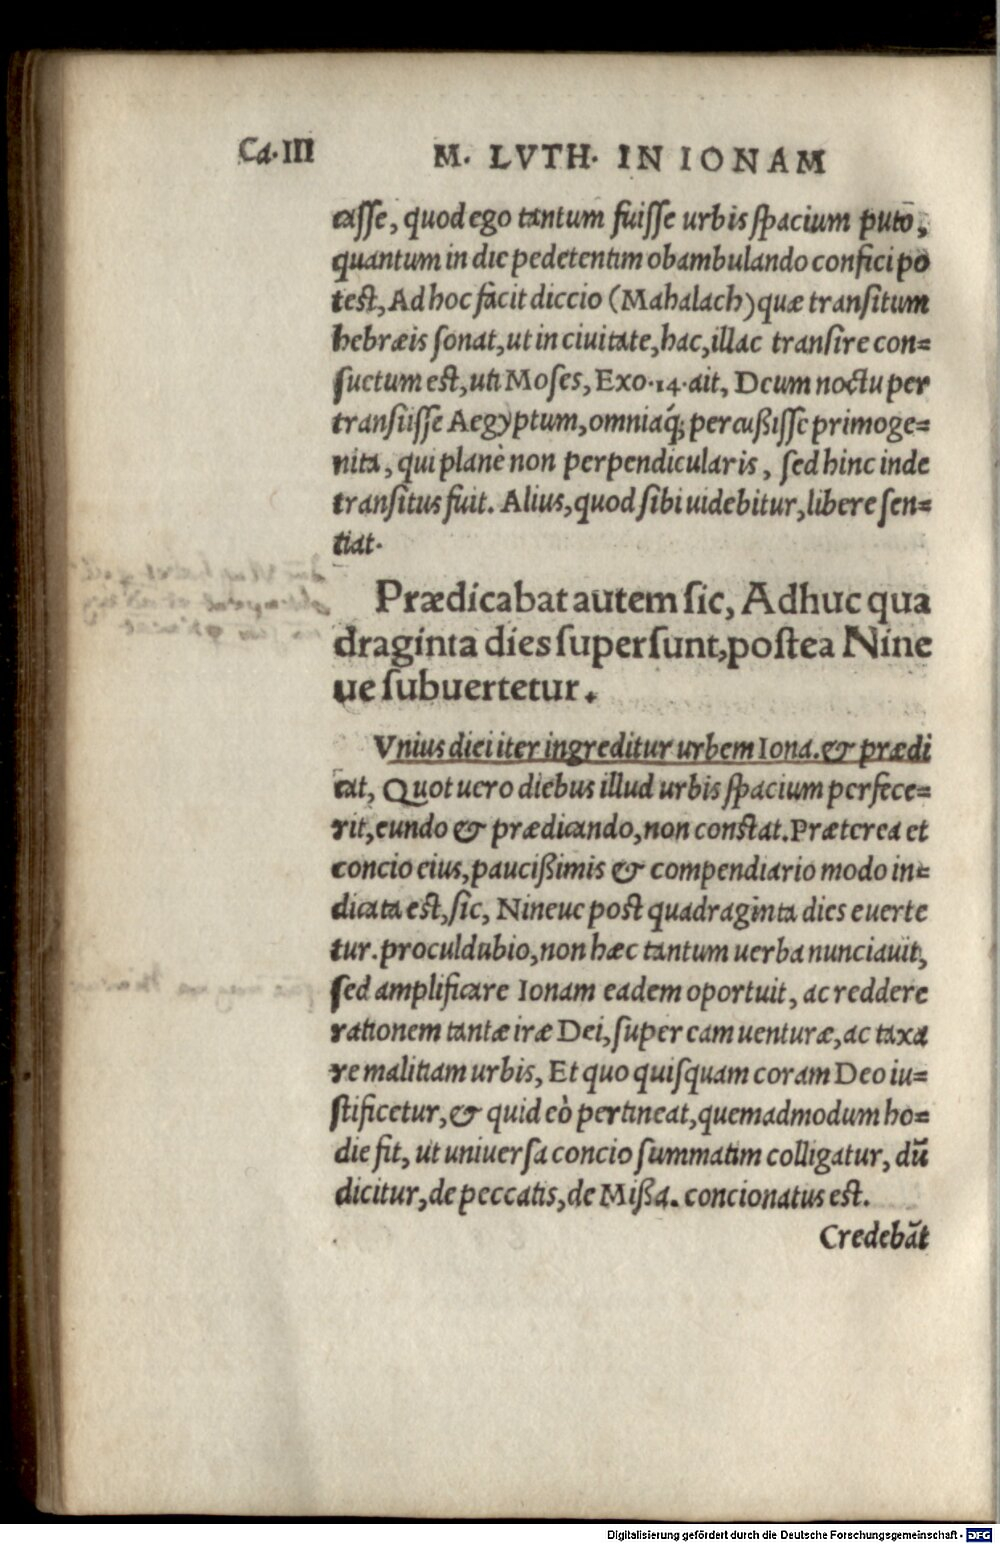 Ca. III M. LVTH. IN IONAM
casse, quod ego tantum fuisse urbis spacium putō,
quantum in die pedetentim obambulando confici po
test, Ad hoc facit diccio (Mahalach) quæ transitum
hebræis sonat, ut in ciuitate, hac, illac transire con=
suetum est, uti Moses, Exo. 14. ait, Deum noctu per
transiisse Aegyptum, omniaq́; percußisse primoge=
nita, qui planè non perpendicularis, sed hinc inde
transitus fuit. Alius, quod sibi uidebitur, libere sen=
tiat.
Prædicabat autem sic, Adhuc qua
draginta dies supersunt, postea Nine
ue subuertetur.
Vnius diei iter ingreditur urbem Iona. & prædi
cat, Quot uero diebus illud urbis spacium perfece=
rit, eundo & prædicando, non constat. Præterea et
concio eius, paucißimis & compendiario modo in=
dicata est, sic, Nineue post quadraginta dies euerte
tur. proculdubio, non hæc tantum uerba nunciauit,
sed amplificare Ionam eadem oportuit, ac reddere
rationem tantæ iræ Dei, super eam uenturæ, ac taxa
re malitiam urbis, Et quo quisquam coram Deo iu=
stificetur, & quid eò pertineat, quemadmodum ho=
die fit, ut uniuersa concio summatim colligatur, dū
dicitur, de peccatis, de Mißa. concionatus est.
Credebāt
Digitalisierung gefördert durch die Deutsche Forschungsgemeinschaft - DFG